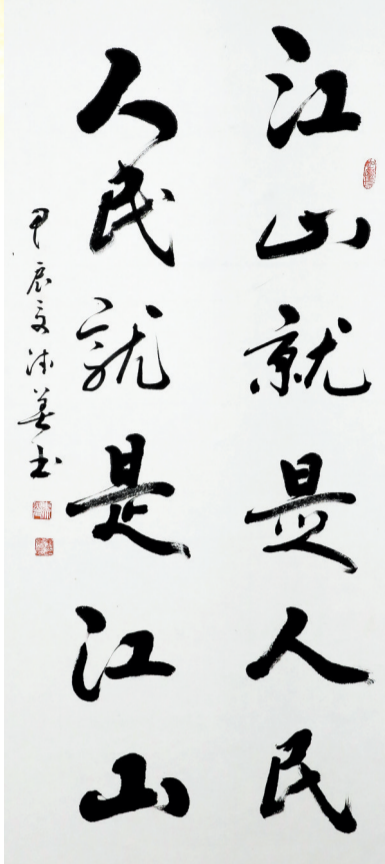 江山就是人民
人民就是江山
甲辰夏沐英书